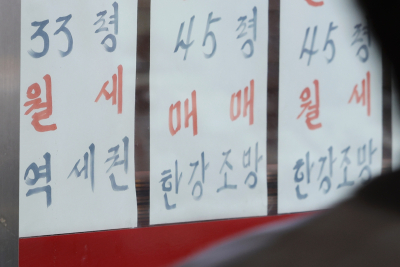 33 평
월 세
역 세 권
45 평
매 매
한강조망
45 평
월 세
한강조망